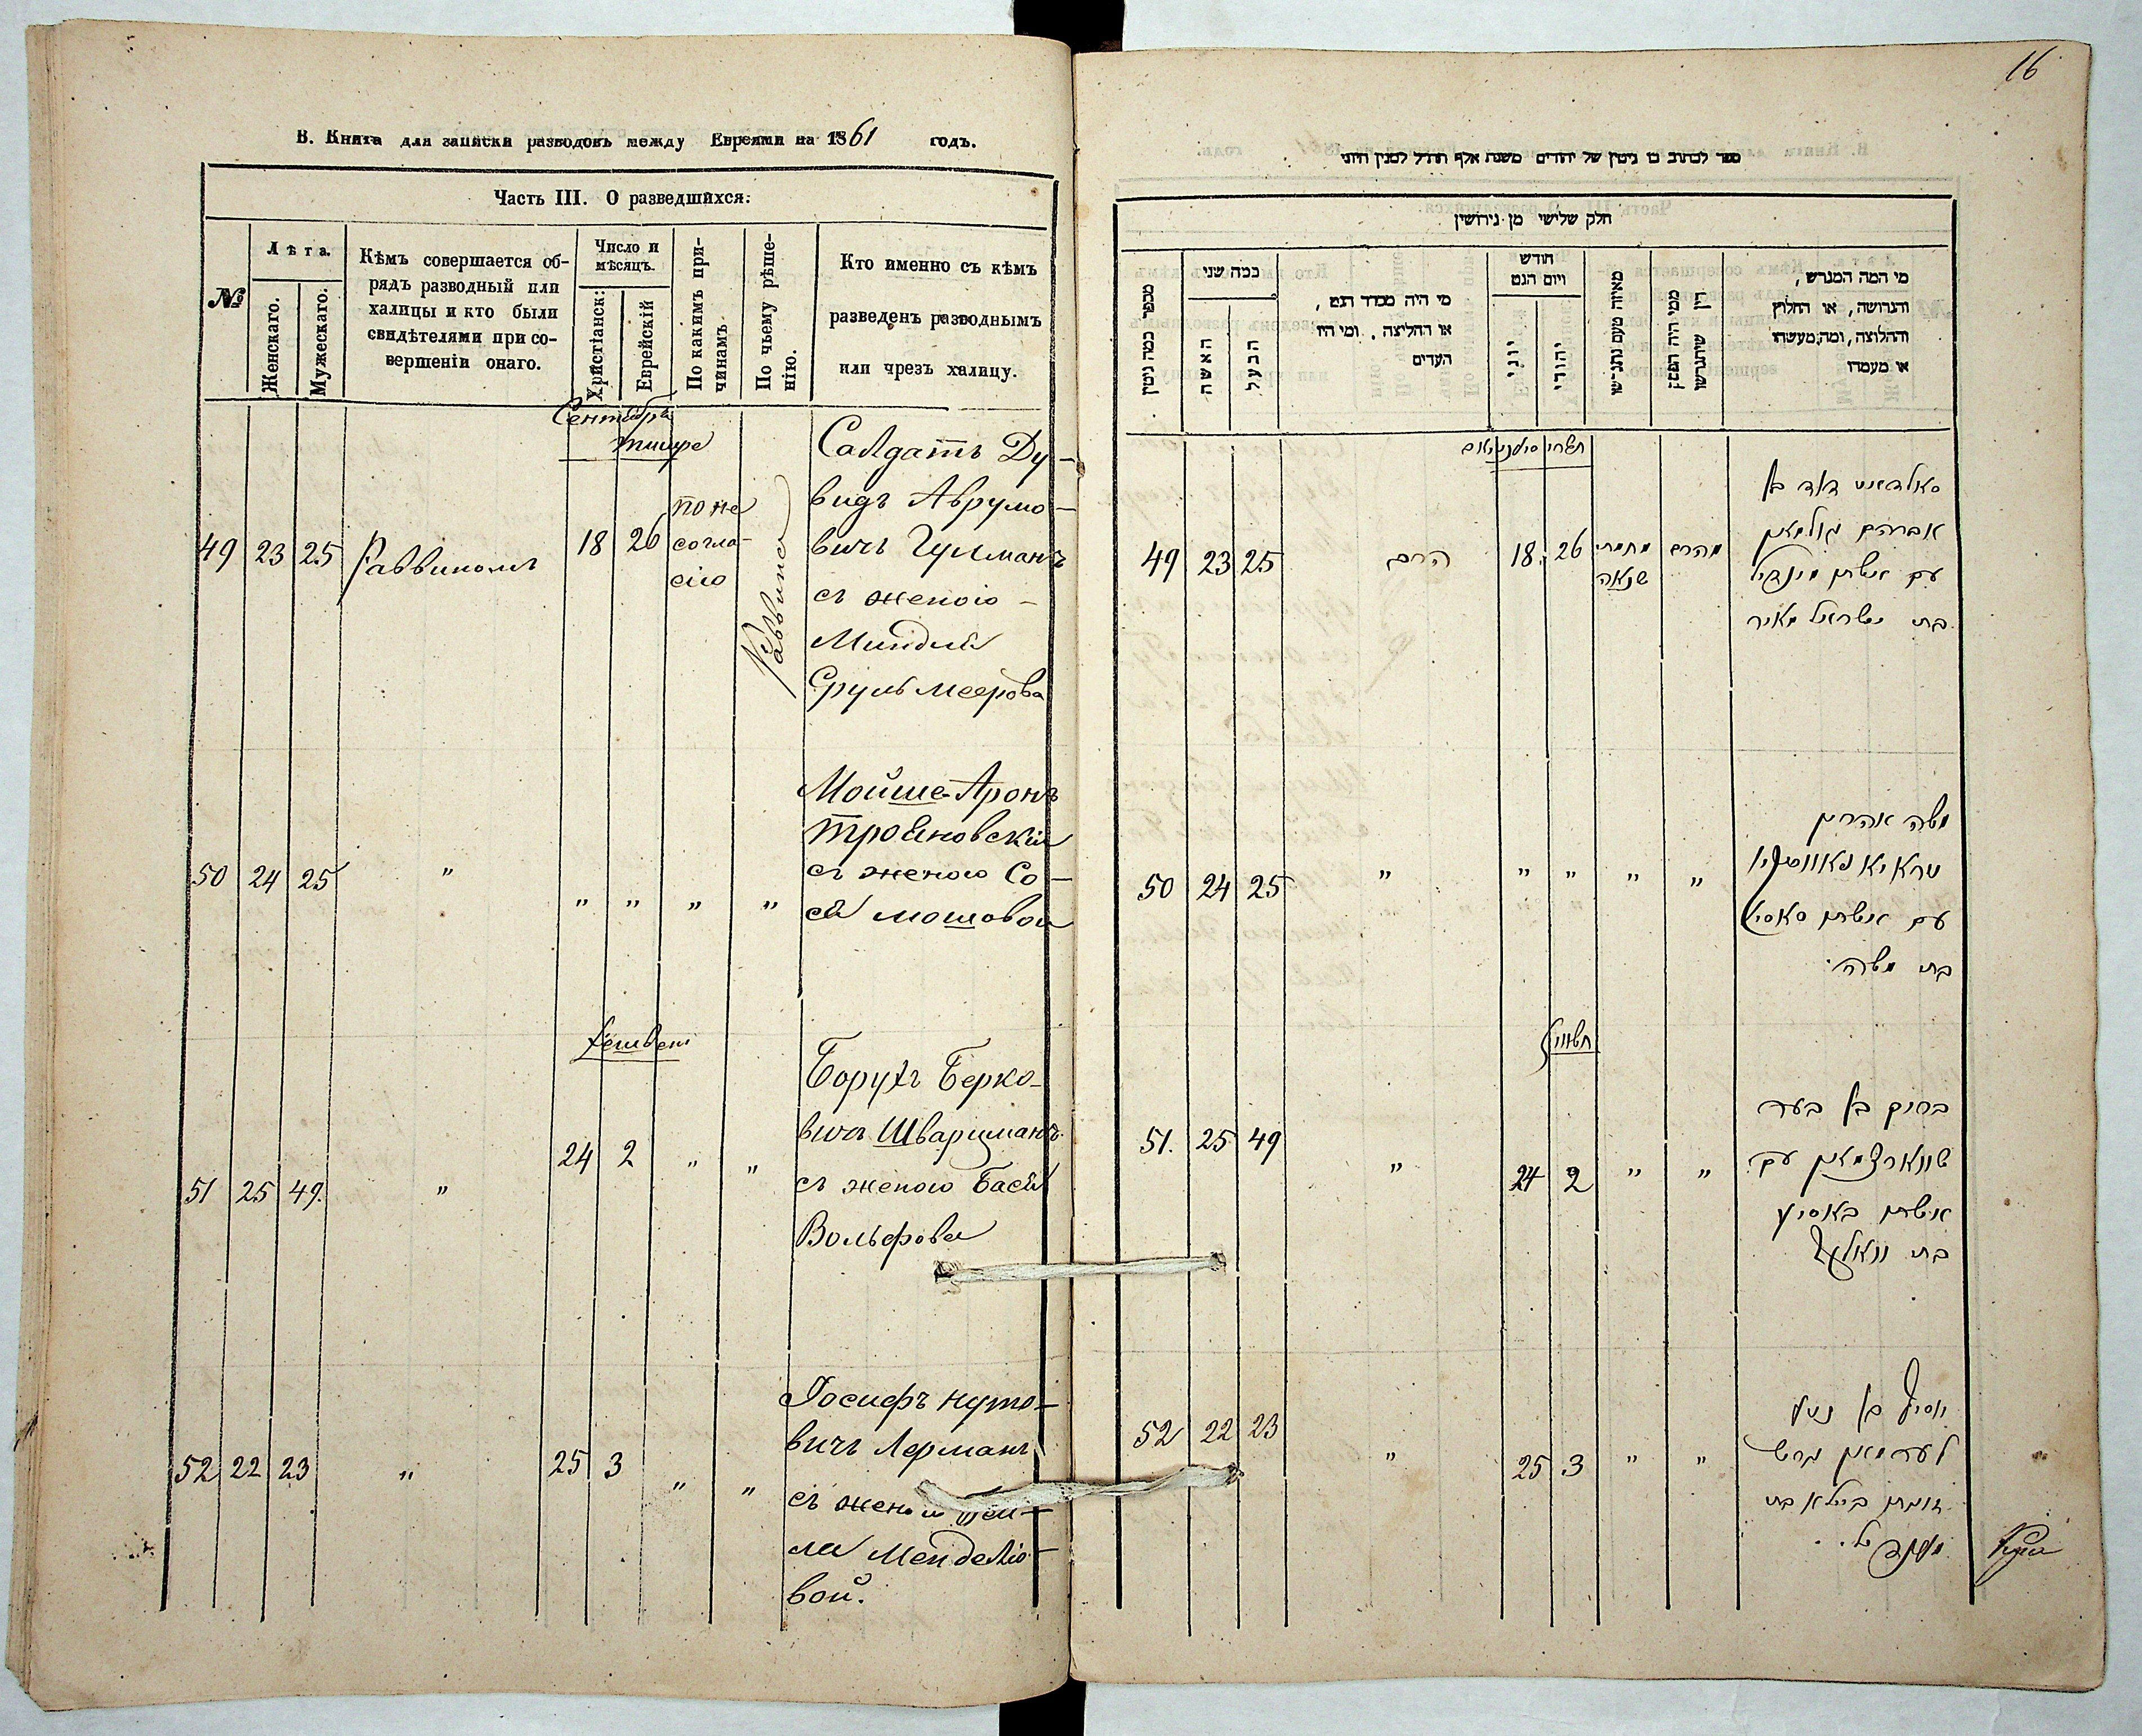 В. Книга для записки разводовъ между Евреями на 1861 годъ.
Часть III. О разведшихся:
№
Лѣта.
Женскаго.
Мужескаго.
Кѣмъ совершается об-
рядъ разводный или
халицы и кто были
свидѣтелями при со-
вершеніи онаго.
Число и
мѣсяцъ.
Христіанск:
Еврейскій
По какимъ при-
чинамъ
По чьему рѣше-
нію.
Кто именно съ кѣмъ
разведенъ разводнымъ
или чрезъ халицу.
Сентябрь
тишре
49 23 25 Раввиномъ 18 26
по не
согла-
сію
Раввина
Салдатъ Ду-
видъ Аврумо-
вичъ Гулманъ
съ женою
Миндля
Сруль Меерова
50 24 25 " " " " "
Мойше-Аронъ
трояновскій
съ женою Со-
ся мошовой
Хешвен
51 25 49. " 24 2 " "
Борухъ Берко-
вичъ Шварцманъ
съ женою Бася
Вольфова
52 22 23 " 25 3 " "
Іосифъ нуто-
вичъ Лерманъ
съ женой
ла Менделіо-
вой.
16
חלק שלישי מן גירושין
מספר כמה גיטין
כמה שני
האשה
הבעל
מי היה מסדר הגט,
או החליצה. ומי היו
העדים
חודש
ויום הגט
יוני
יהודי
מאיזה טעם נתגרשו
ממי היה הפסק
דין שיתגרשו
מי המה המגרש,
והגרושה, או החלוץ
והחלוצה, ומה מעשהו
או מעמדו
תשרי
49 23 25 הרב 18 26
מחמת
שנאה
מהרב
סאלדאט דוד בן
אברהם גולמאן
עם אשתו מינדיל
בת ישראל מאיר
50 24 25 " " " " "
משה אהרון
טראיאנאווסקי
עם אשתו סאסיע
בת משה
חשוון
51. 25 49 " 24 2 " "
ברוך בן בער
שווארצמאן עם
אשתו באסיע
בת וואלף
52 22 23 " 25 3 " "
יוסיף בן נטע
לערמאן גרש
זוגתו ביילא בת
מענדל..